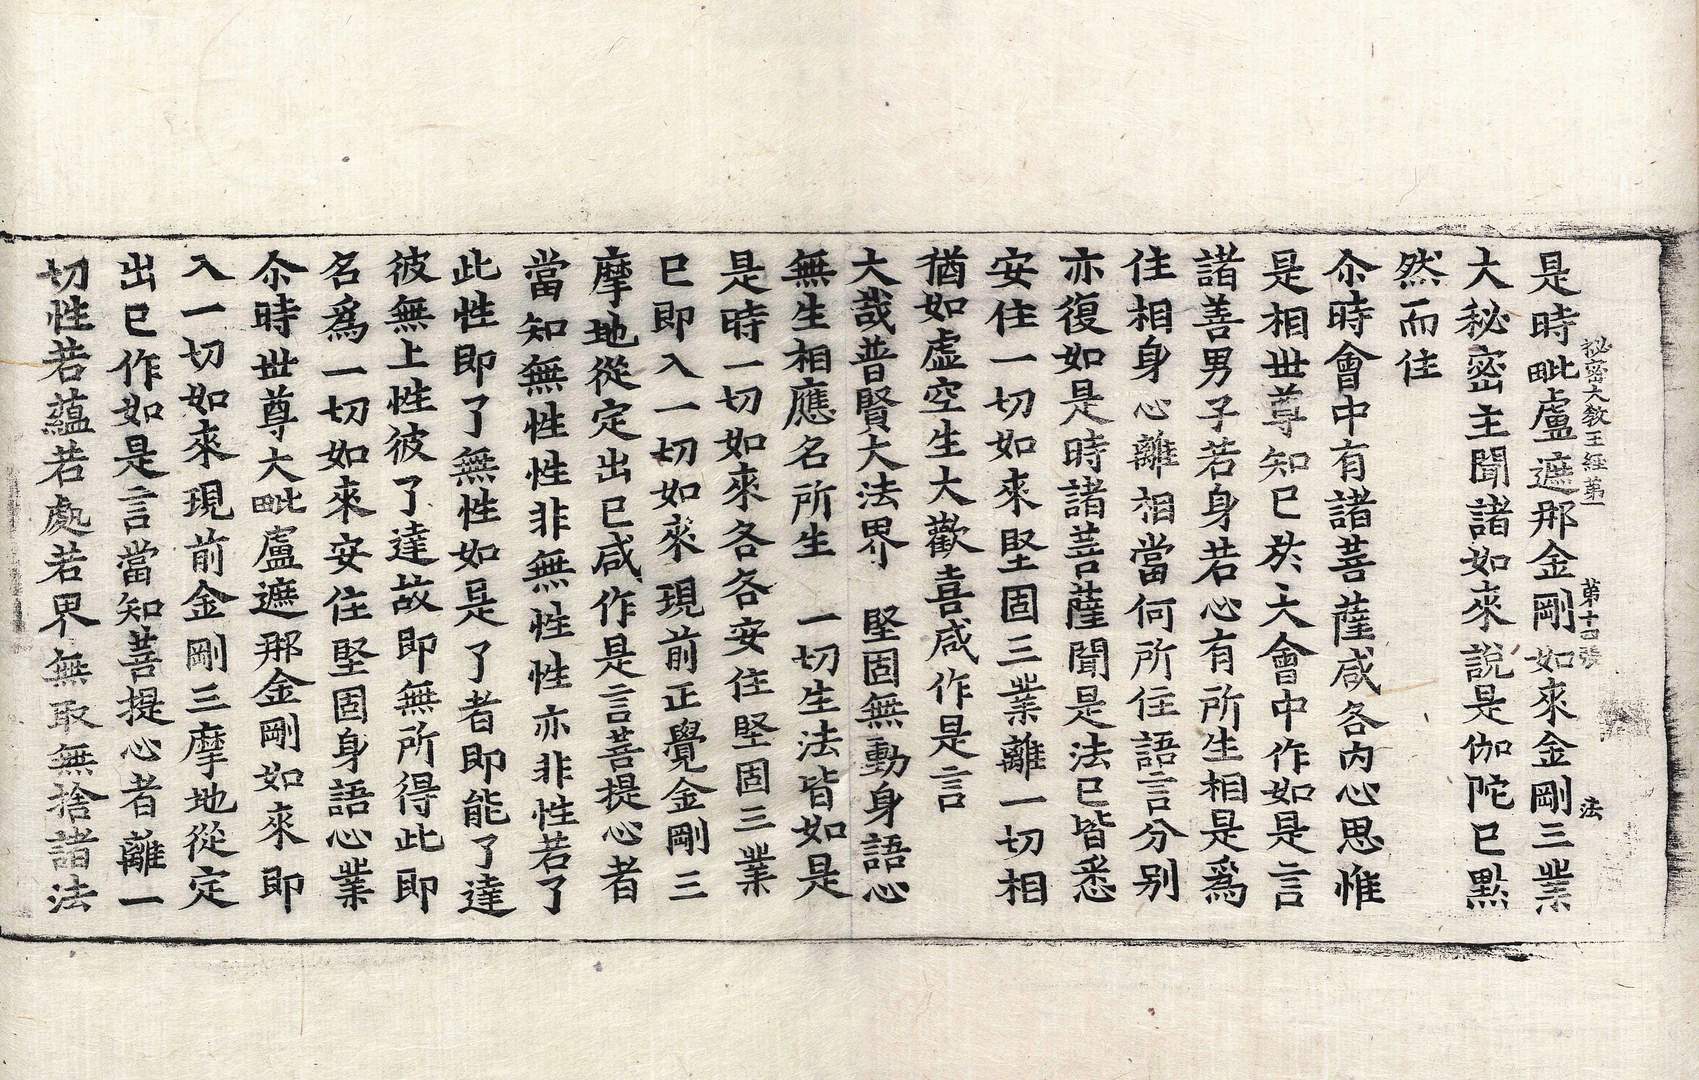 秘密大教王經第一　第十四張　法
是時毗盧遮那金剛如來金剛三業
大秘密主聞諸如來說是伽陀已默
然而住
尒時會中有諸菩薩咸各內心思惟
是相世尊知已於大會中作如是言
諸善男子若身若心有所生相是爲
住相身心離相當何所住語言分別
亦復如是時諸菩薩聞是法已皆悉
安住一切如來堅固三業離一切相
猶如虛空生大歡喜咸作是言
大哉普賢大法界　堅固無動身語心
無生相應名所生　一切生法皆如是
是時一切如來各各安住堅固三業
已即入一切如來現前正覺金剛三
摩地從定出已咸作是言菩提心者
當知無性性非無性性亦非性若了
此性即了無性如是了者即能了達
彼無上性彼了達故即無所得此即
名爲一切如來安住堅固身語心業
尒時世尊大毗盧遮那金剛如來即
入一切如來現前金剛三摩地從定
出已作如是言當知菩提心者離一
切性若蘊若處若界無取無捨諸法